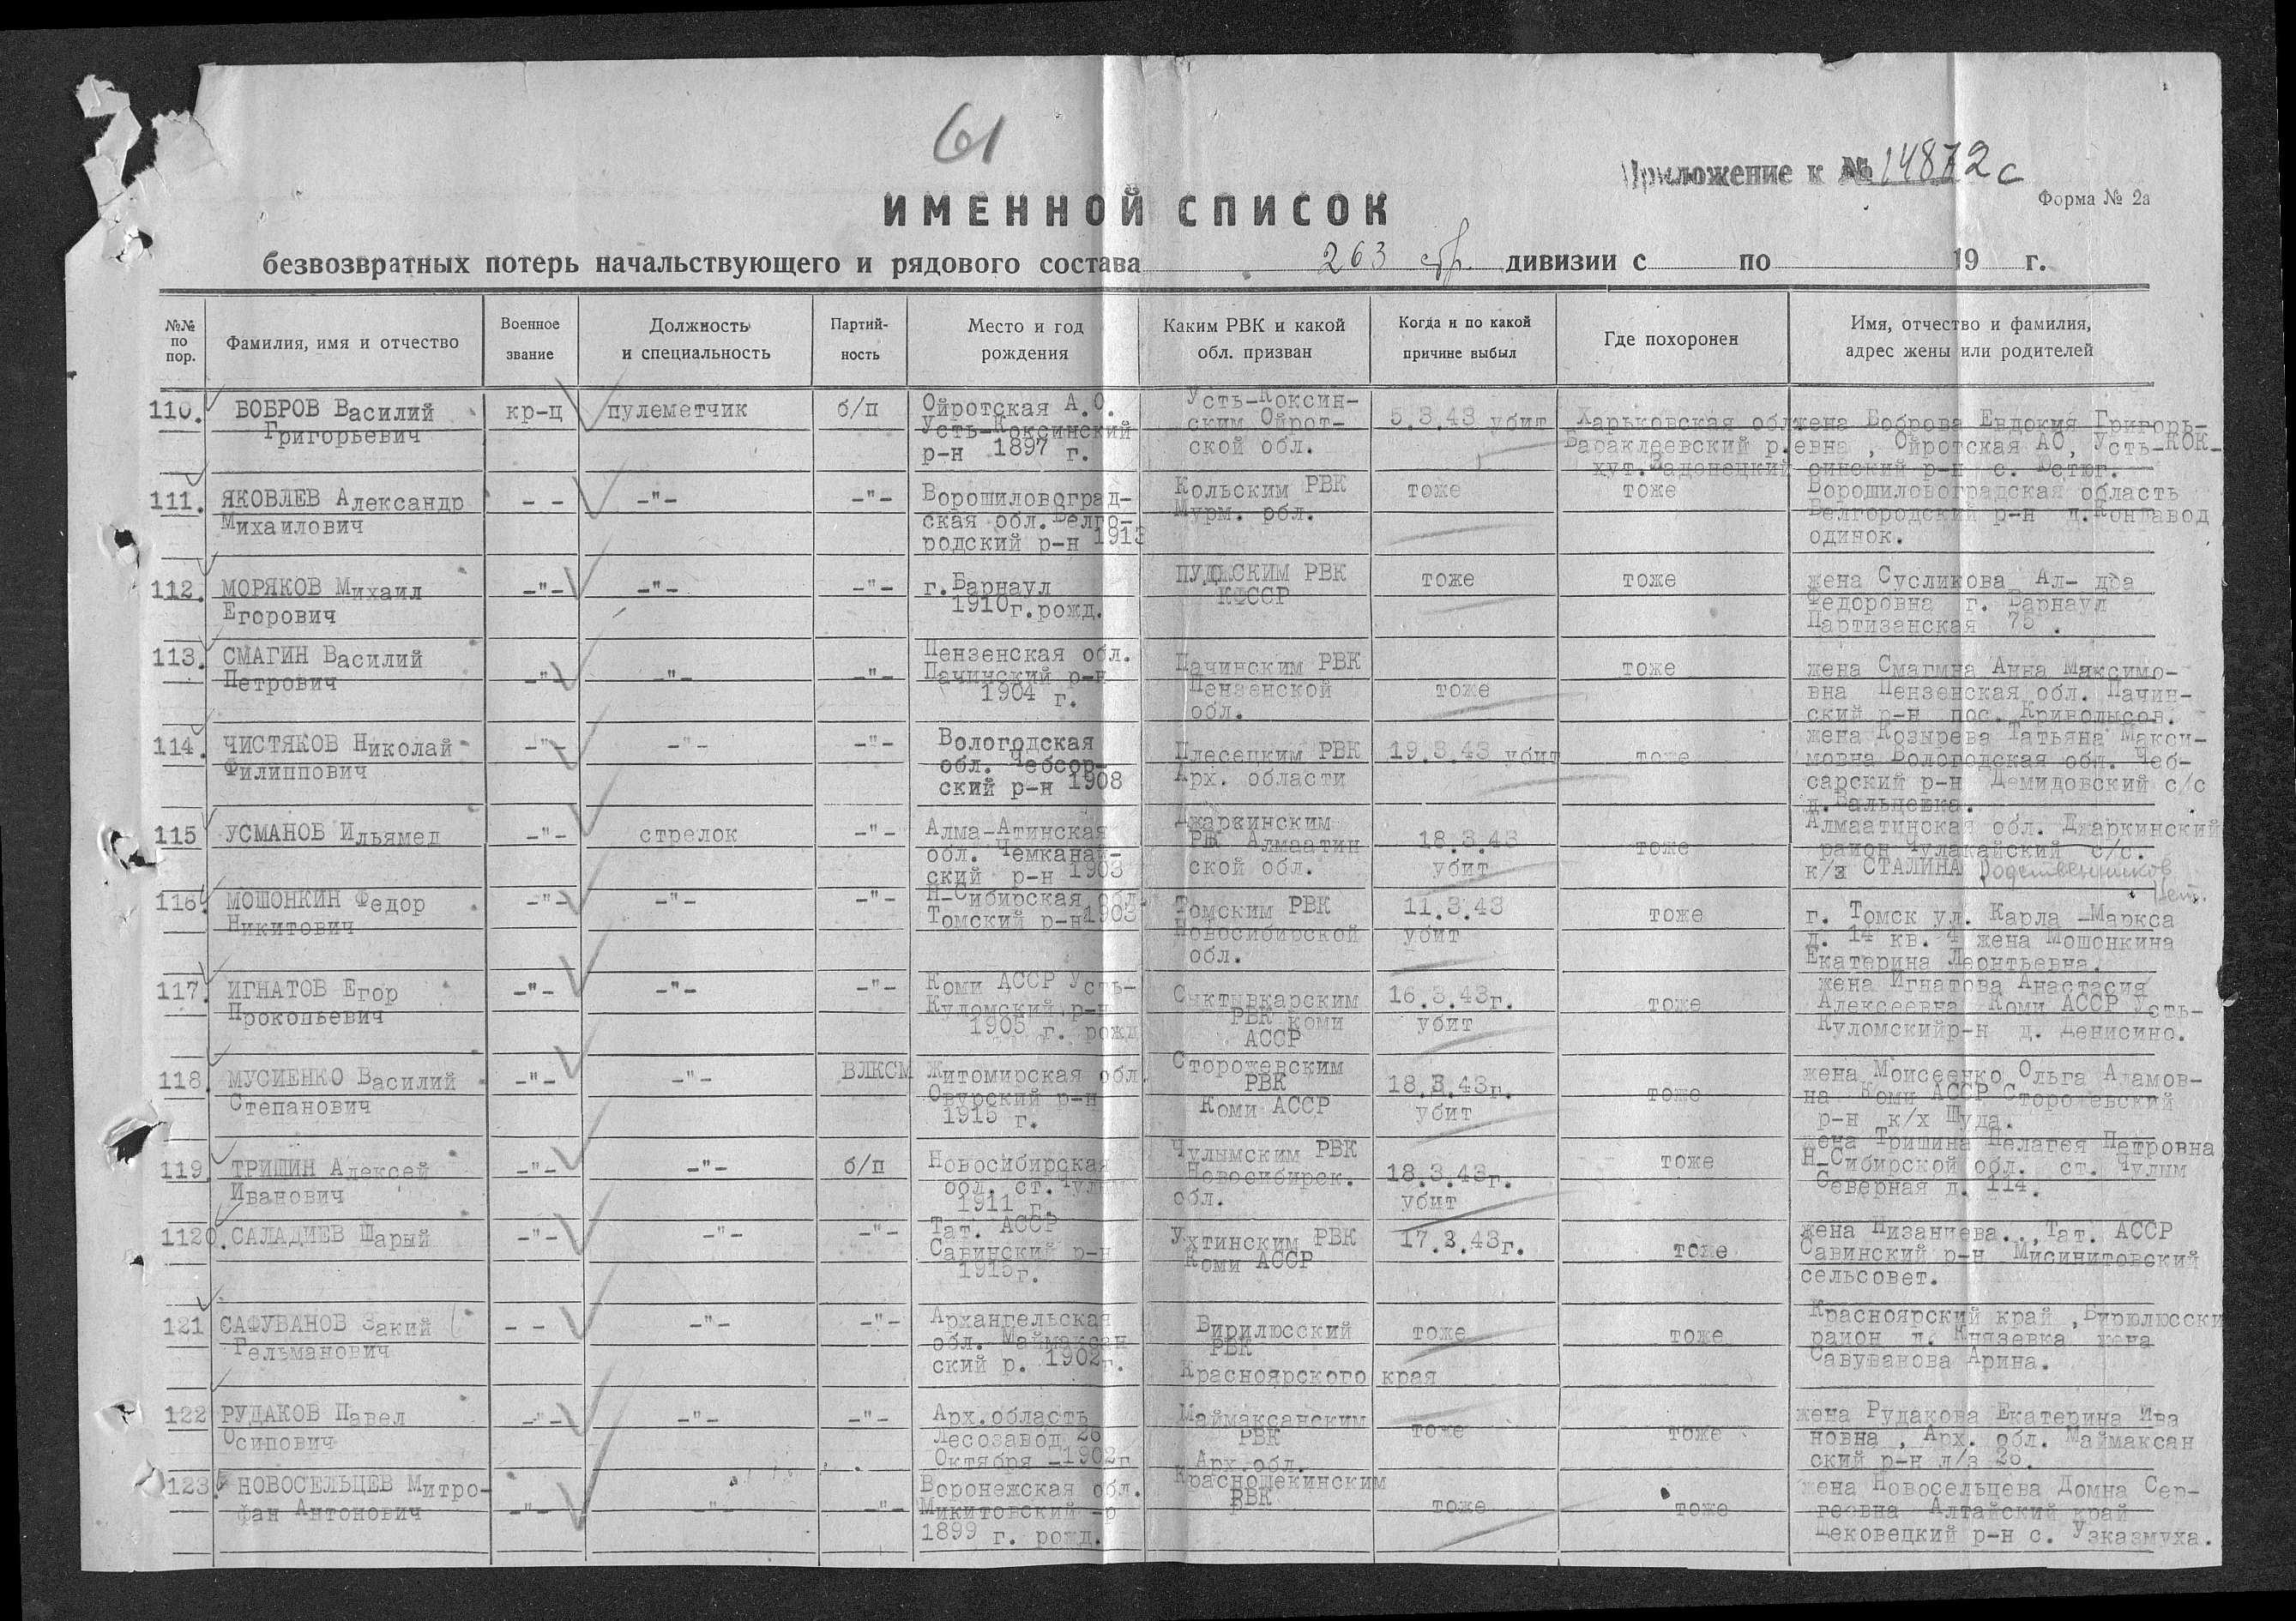 61
Приложение к № 14872с
Форма № 2а
ИМЕННОЙ СПИСОК
безвозвратных потерь начальствующего и рядового состава 263 стр. дивизии с по 19 г.
№№ по пор.
Фамилия, имя и отчество
Военное звание
Должность и специальность
Партий- ность
Место и год рождения
Каким РВК и какой обл. призван
Когда и по какой причине выбыл
Где похоронен
Имя, отчество и фамилия, адрес жены или родителей
110. БОБРОВ Василий
Григорьевич
кр-ц
пулеметчик
б/п
Ойротская А.О.
Усть-Коксинский
р-н 1897 г.
Усть-Коксин-
ским Ойрот-
ской обл.
5.3.43 убит
Харьковская обл
Балаклеевский р.
хут. Задонецкий
жена Боброва Евдокия Григорь-
евна , Ойротская АО, Усть-КОК-
синский р-н с.
111. ЯКОВЛЕВ Александр
Михаилович
- -
-"-
-"-
Ворошиловоград-
ская обл. Белго-
родский р-н 1913
Кольским РВК
Мурм. обл.
тоже
тоже
Ворошиловоградская область
Белгородский р-н
одинок.
112. МОРЯКОВ Михаил
Егорович
-"-
-"-
-"-
г. Барнаул
1910г.рожд.
ПУДОЖСКИМ РВК
КФССР
тоже
тоже
жена Сусликова Ал- дра
Федоровна г. Барнаул
Партизанская 75 .
113. СМАГИН Василий
Петрович
-"-
-"-
-"-
Пензенская обл.
Пачинский р-н
1904 г.
Пачинским РВК
Пензенской
обл.
тоже
тоже
жена Смагмна Анна Максимо-
вна Пензенская обл. Пачин-
ский р-н пос. Криволысов.
114. ЧИСТЯКОВ Николай
Филиппович
-"-
-"-
-"-
Вологодская
обл. Чебсор-
ский р-н 1908
Плесецким РВК
Арх. области
19.3.43 убит
тоже
жена Козырева Татьяна Макси-
мовна Вологодская обл. Чеб-
сарский р-н Демидовский с/с
д. Вальцевка.
115 УСМАНОВ Ильямед
-"-
стрелок
-"-
Алма-Атинская
обл. Чемканай-
ский р-н 1903
Джаркинским
РВК Алмаатин
ской обл.
18.3.43
убит
тоже
Алмаатинская обл. Джаркинский
район Чулакайский с/с.
к/з СТАЛИНА родственников
нет.
116. МОШОНКИН Федор
Никитович
-"-
-"-
-"-
Н-Сибирская обл.
Томский р-н 1903
Томским РВК
Новосибирской
обл.
11.3.43
убит
тоже
г. Томск ул. Карла -Маркса
д. 14 кв. 4 жена Мошонкина
Екатерина Леонтьевна.
117. ИГНАТОВ Егор
Прокопьевич
-"-
-"-
-"-
Коми АССР Усть-
Куломский р-н
1905 г. рожд
Сыктывкарским
РВК коми
АССР
16.3.43г.
убит
тоже
жена Игнатова Анастасия
Алексеевна Коми АССР Усть-
Куломскийр-н д. Денисино.
118. МУСИЕНКО Василий
Степанович
-"-
-"-
ВЛКСМ
Житомирская обл.
Овурский р-н
1915 г.
Сторожевским
РВК
Коми АССР
18.3.43г.
убит
тоже
жена Моисеенко Ольга Адамов-
на Коми АССР Сторожевский
р-н к/х Шуда.
119. ТРИШИН Алексей
Иванович
-"-
-"-
б/п
Новосибирская
обл. ст. Чулым
1911 г.
Чулымским РВК
Новосибирск.
обл.
18.3.43г.
убит
тоже
жена Тришина Пелагея Петровна
Н-Сибирской обл. ст. Чулым
Северная д. 114.
1120. САЛАДИЕВ Шарый
-"-
-"-
-"-
Тат. АССР
Савинский р-н
1915г.
Ухтинским РВК
Коми АССР
17.3.43г.
тоже
жена Низанцева..,Тат. АССР
Савинский р-н Мисинитовский
сельсовет.
121 САФУВАНОВ Закий
Гельманович
- -
-"-
-"-
Архангельская
обл. Маймаксан
ский р. 1902г.
Бирилюсский
РВК
Красноярского края
тоже
тоже
Красноярский край ,Бурюлюсски
район д. Князевка жена
Савуванова Арина.
122 РУДАКОВ Павел
Осипович
-"-
-"-
-"-
Арх.область
Лесозавод 26
Октября -1902г
Маймаксанским
РВК
Арх.обл.
тоже
тоже
жена Рудакова Екатерина Ива
новна , Арх. обл. Маймаксан
ский р-н л/з 26.
123. НОВОСЕЛЬЦЕВ Митро-
фан Антонович
-"-
-"-
-"-
Воронежская обл.
Микитовский -р
1899 г. рожд.
Краснощекинским
РВК
тоже
тоже
жена Новосельцева Домна Сер-
геевна Алтайский край
р-н с. Узказмуха.